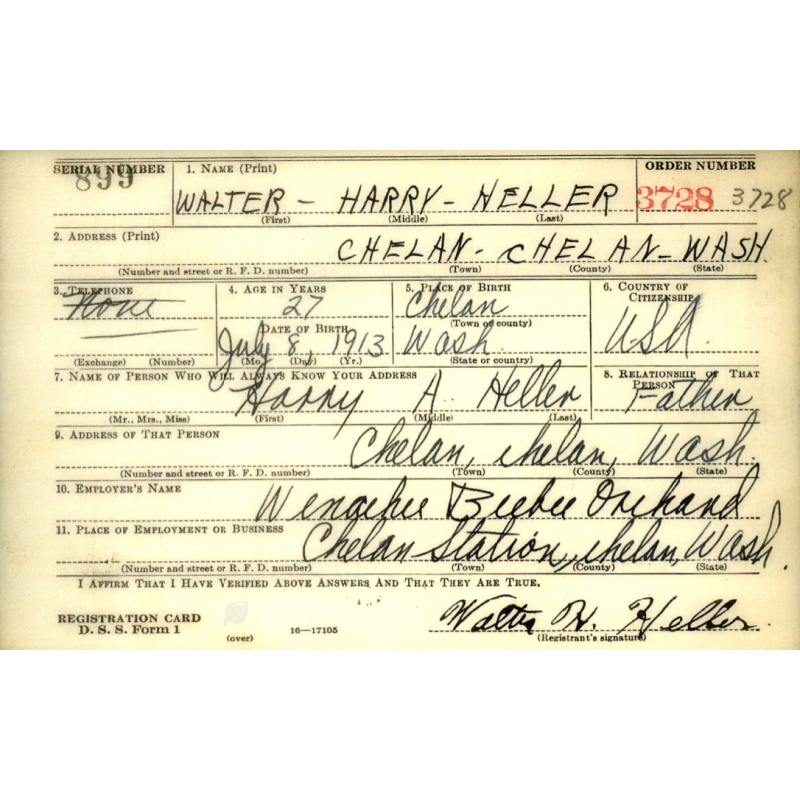 SERIAL NUMBER 1. NAME (Print) ORDER NUMBER
899 WALTER - HARRY - HELLER 3728 3728
(First) (Middle) (Last)
2. ADDRESS (Print)
CHELAN - CHELAN - WASH.
(Number and street or R. F. D. number) (Town) (County) (State)
3. TELEPHONE 4. AGE IN YEARS 5. PLACE OF BIRTH 6. COUNTRY OF CITIZENSHIP
None 27 Chelan
(Town or county)
DATE OF BIRTH
July 8, 1913 Wash. USA.
(Exchange) (Number) (Mo.) (Day) (Yr.) (State or country)
7. NAME OF PERSON WHO WILL ALWAYS KNOW YOUR ADDRESS 8. RELATIONSHIP OF THAT PERSON
Harry A. Heller Father
(Mr., Mrs., Miss) (First) (Middle) (Last)
9. ADDRESS OF THAT PERSON
Chelan, Chelan, Wash.
(Number and street or R. F. D. number) (Town) (County) (State)
10. EMPLOYER'S NAME
Beebee Orchard
11. PLACE OF EMPLOYMENT OR BUSINESS
Chelan Station, Chelan, Wash.
(Number and street or R. F. D. number) (Town) (County) (State)
I AFFIRM THAT I HAVE VERIFIED ABOVE ANSWERS AND THAT THEY ARE TRUE.
REGISTRATION CARD
D. S. S. Form 1 (over) 16—17105 Walter H. Heller.
(Registrant's signature)